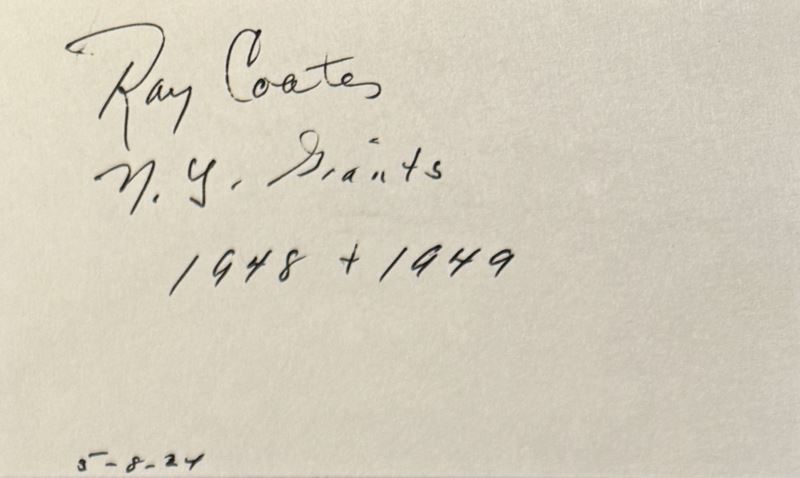 Ray Coates
N.Y. Giants
1948 + 1949
5-8-24